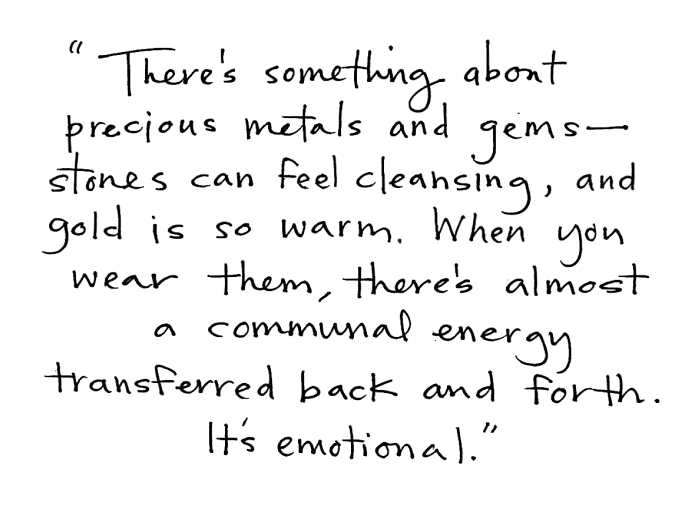 “There's something about
precious metals and gems—
stones can feel cleansing, and
gold is so warm. When you
wear them, there's almost
a communal energy
transferred back and forth.
It's emotional.”